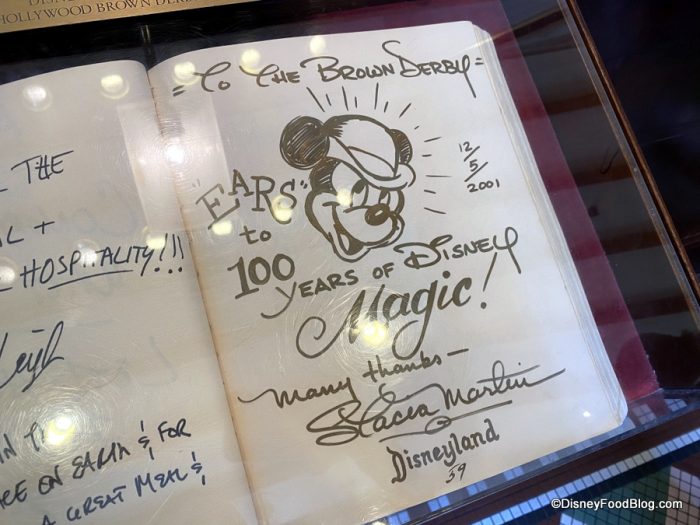 HOLLYWOOD BROWN
THE
+
HOSPITALITY!!!
Leigh
ON EARTH & FOR
A GREAT MEAL &
=To The Brown Derby=
12/5/2001
"EARS"
to
100
YEARS OF DISNEY
Magic!
Many thanks—
Stacia Martin
Disneyland
59
©DisneyFoodBlog.com